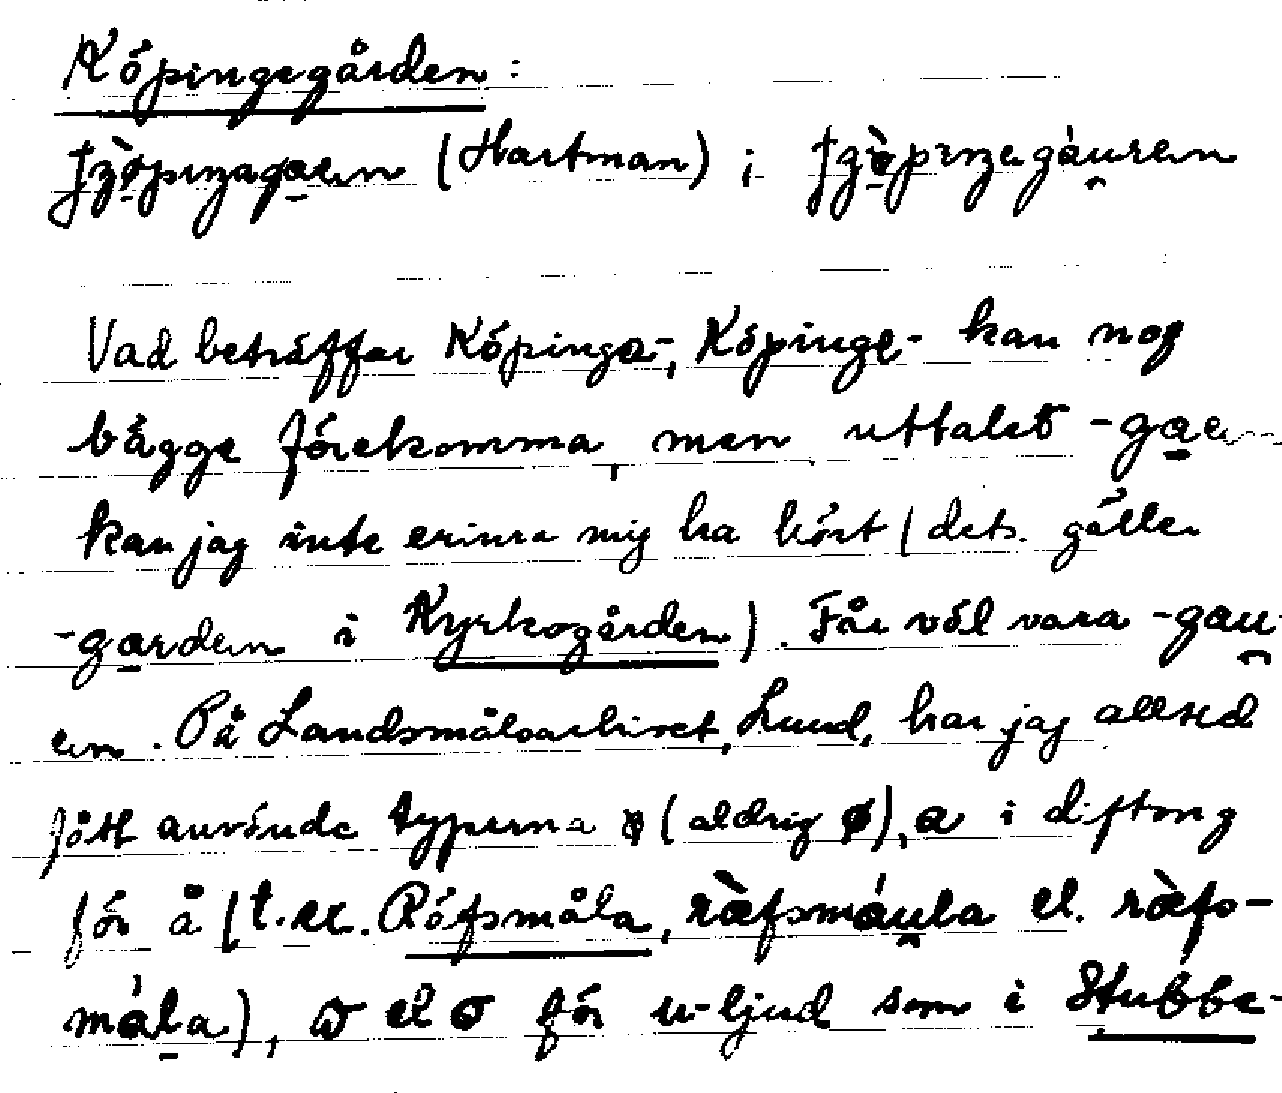 Köpingegården:
(Hartman) ;
Vad beträffar Köpinga-, Köpinge- kan nog
bägge förekomma, men uttalet -gaen
kan jag inte erinra mig ha hört (dets. gäller
-garden i Kyrkogården). Får väl vara -gau-
en. På Landsmålsarkivet, Lund, har jag alltid
fått använda typerna (aldrig ø), a i diftong
för å (t.ex. Röfsmåla, räfsmáula el. räfs-
mála), ɷ el σ för u-ljud som i Stubbe-